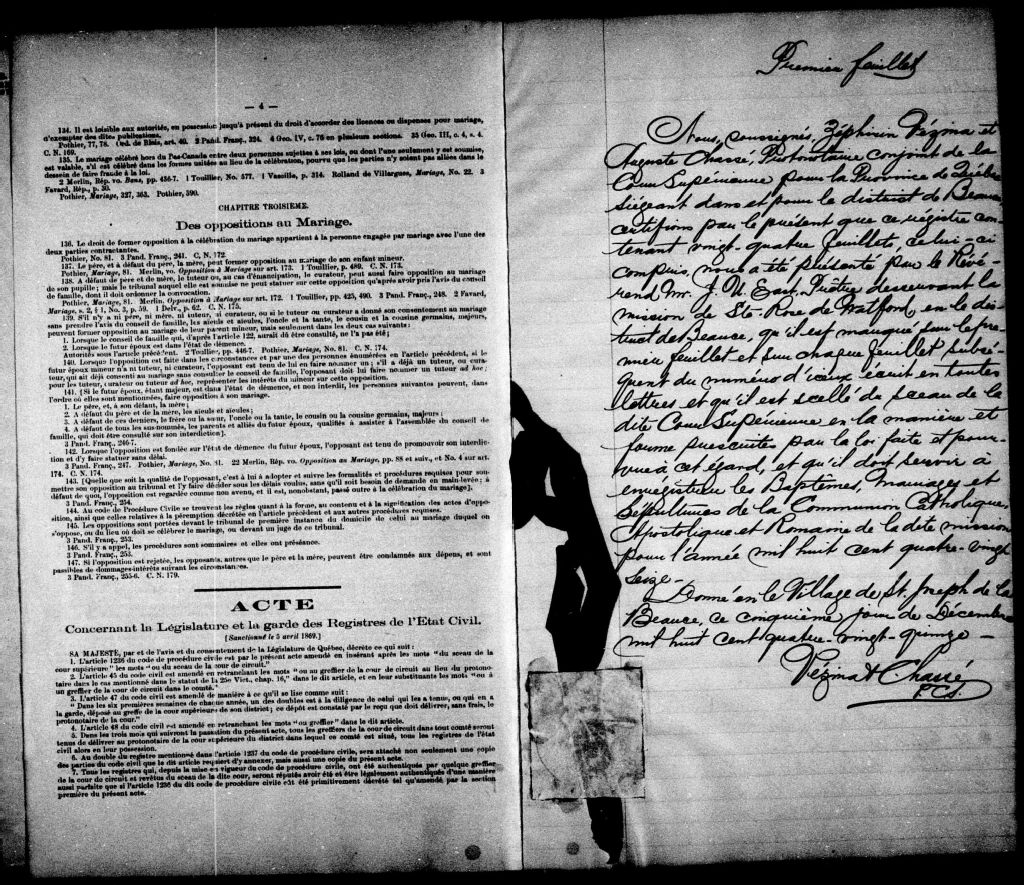 — 4 —
134. Il est loisible aux autorités, en possession jusqu'à présent du droit d'accorder des licences ou dispenses pour mariage,
d'exempter des dites publications.
Pothier, 77, 78. Ord. de Blois, art. 40. 2 Pand. Franç., 224. 4 Geo. IV, c. 75 en plusieurs sections. 35 Geo. III, c. 4, s. 4.
C. N. 169.
135. Le mariage célébré hors du Bas-Canada entre deux personnes sujettes à ses lois, ou dont l'une seulement y est soumise,
est valable, s'il est célébré dans les formes usitées au lieu de la célébration, pourvu que les parties n'y soient pas allées dans le
dessein de faire fraude à la loi.
2 Merlin, Rép. vo. Bans, pp. 436-7. 1 Touillier, No. 577. 1 Vazeille, p. 314. Rolland de Villargues, Mariage, No. 22. 3
Favard, Rép., p. 30.
Pothier, Mariage, 327, 363. Pothier, 590.
CHAPITRE TROISIEME.
Des oppositions au Mariage.
136. Le droit de former opposition à la célébration du mariage appartient à la personne engagée par mariage avec l'une des
deux parties contractantes.
Pothier, No. 81. 3 Pand. Franç., 241. C. N. 172.
137. Le père, et à défaut du père, la mère, peut former opposition au mariage de son enfant mineur.
Pothier, Mariage, 81. Merlin, vo. Opposition à Mariage sur art. 173. 1 Touillier, p. 489. C. N. 173.
138. A défaut de père et de mère, le tuteur ou, au cas d'émancipation, le curateur, peut aussi faire opposition au mariage
de son pupille; mais le tribunal auquel elle est soumise ne peut statuer sur cette opposition qu'après avoir pris l'avis du conseil
de famille, dont il doit ordonner la convocation.
Pothier, Mariage, 81. Merlin, Opposition à Mariage sur art. 172. 1 Touillier, pp. 425, 490. 3 Pand. Franç., 248. 2 Favard,
Mariage, s. 2, § 1, No. 3, p. 59. 1 Delv., p. 62. C. N. 175.
139. S'il n'y a ni père, ni mère, ni tuteur, ni curateur, ou si le tuteur ou curateur a donné son consentement au mariage
sans prendre l'avis du conseil de famille, les aïeuls et aïeules, l'oncle et la tante, le cousin et la cousine germains, majeurs,
peuvent former opposition au mariage de leur parent mineur, mais seulement dans les deux cas suivants:
1. Lorsque le conseil de famille qui, d'après l'article 122, aurait dû être consulté, ne l'a pas été;
2. Lorsque le futur époux est dans l'état de démence.
Autorités sous l'article précédent. 2 Touillier, pp. 446-7. Pothier, Mariage, No. 81. C. N. 174.
140. Lorsque l'opposition est faite dans les circonstances et par une des personnes énumérées en l'article précédent, si le
futur époux mineur n'a ni tuteur, ni curateur, l'opposant est tenu de lui en faire nommer un; s'il a déjà un tuteur, ou curateur,
qui ait déjà consenti au mariage sans consulter le conseil de famille, l'opposant doit lui faire nommer un tuteur ad hoc;
pour les tuteur, curateur ou tuteur ad hoc, représenter les intérêts du mineur sur cette opposition.
141. [Si le futur époux, étant majeur, est dans l'état de démence, et non interdit, les personnes suivantes peuvent, dans
l'ordre où elles sont mentionnées, faire opposition à son mariage.
1. Le père, et, à son défaut, la mère;
2. A défaut du père et de la mère, les aïeuls et aïeules;
3. A défaut de ces derniers, le frère ou la sœur, l'oncle ou la tante, le cousin ou la cousine germains, majeurs;
4. A défaut de tous les sus-nommés, les parents et alliés du futur époux, qualifiés à assister à l'assemblée du conseil de
famille, qui doit être consulté sur son interdiction].
3 Pand. Franç., 246-7.
142. Lorsque l'opposition est fondée sur l'état de démence du futur époux, l'opposant est tenu de promouvoir son interdiction
et d'y faire statuer sans délai.
3 Pand. Franç., 247. Pothier, Mariage, No. 81. 22 Merlin, Rép. vo. Opposition au Mariage, pp. 88 et suiv., et No. 4 sur art.
174. C. N. 174.
143. [Quelle que soit la qualité de l'opposant, c'est à lui à adopter et suivre les formalités et procédures requises pour soumettre
son opposition au tribunal et l'y faire décider sous les délais voulus, sans qu'il soit besoin de demande en main-levée; à
défaut de quoi, l'opposition est regardée comme non avenue, et il est, nonobstant, passé outre à la célébration du mariage].
3 Pand. Franç., 254.
144. Au code de Procédure Civile se trouvent les règles quant à la forme, au contenu et à la signification des actes d'opposition,
ainsi que celles relatives à la péremption décrétée en l'article précédent et aux autres procédures requises.
145. Les oppositions sont portées devant le tribunal de première instance du domicile de celui au mariage duquel on
s'oppose, ou du lieu où doit se célébrer le mariage, ou devant un juge de ce tribunal.
3 Pand. Franç., 253.
146. S'il y a appel, les procédures sont sommaires et elles ont préséance.
3 Pand. Franç., 253.
147. Si l'opposition est rejetée, les opposants, autres que le père et la mère, peuvent être condamnés aux dépens, et sont
passibles de dommages-intérêts suivant les circonstances.
3 Pand. Franç., 255-6. C. N. 179.
ACTE
Concernant la Législature et la garde des Registres de l'Etat Civil.
[Sanctionné le 5 avril 1869.]
SA MAJESTÉ, par et de l'avis et du consentement de la Législature de Québec, décrète ce qui suit:
1. L'article 1236 du code de procédure civile est par le présent acte amendé en insérant après les mots "du sceau de la
cour supérieure" les mots "ou du sceau de la cour de circuit."
2. L'article 45 du code civil est amendé en retranchant les mots "ou au greffier de la cour de circuit au lieu du protonotaire
dans le cas mentionné dans le statut de la 25e Vict., chap. 16," dans le dit article, et en leur substituant les mots "ou à
un greffier de la cour de circuit dans le comté."
3. L'article 47 du code civil est amendé de manière à ce qu'il se lise comme suit:
"Dans les six premières semaines de chaque année, un des doubles est à la diligence de celui qui les a tenus, ou qui en a
la garde, déposé au greffe de la cour supérieure de son district; ce dépôt est constaté par le reçu que doit délivrer, sans frais, le
protonotaire de la cour."
4. L'article 48 du code civil est amendé en retranchant les mots "ou greffier" dans le dit article.
5. Dans les trois mois qui suivront la passation du présent acte, tous les greffiers de la cour de circuit dans tout comté seront
tenus de délivrer au protonotaire de la cour supérieure du district dans lequel ce comté est situé, tous les registres de l'état
civil alors en leur possession.
6. Au double du registre mentionné dans l'article 1237 du code de procédure civile, sera attaché non seulement une copie
des parties du code civil que le dit article requiert d'y annexer, mais aussi une copie du présent acte.
7. Tous les registres qui, depuis la mise en vigueur du code de procédure civile, ont été authentiqués par quelque greffier
de la cour de circuit et revêtus du sceau de la dite cour, seront réputés avoir été et être légalement authentiqués d'une manière
aussi parfaite que si l'article 1236 du dit code de procédure civile eût été primitivement décrété tel qu'amendé par la section
première du présent acte.
Premier feuillet
Nous, soussignés, Zéphirin Vézina et
Auguste Chassé, Protonotaire conjoint de la
Cour Supérieure pour la Province de Québec
siégeant dans et pour le district de Beauce,
certifions par le présent que ce régistre con-
tenant vingt-quatre feuillets, celui-ci
compris, nous a été présenté par le Révé-
rend Mr. J. U. Ptre desservant la
mission de Ste-Rose de Watford, en le dis-
trict de Beauce, qu'il est marqué sur le pre-
mier feuillet et sur chaque feuillet subsé-
quent du numéro d'iceux écrit en toutes
lettres et qu'il est scellé du sceau de la
dite Cour Supérieure en la manière et
forme prescrites par la loi faite et pour-
vue à cet égard, et qu'il doit servir à
enrégistrer les Baptêmes, Mariages et
Sépultures de la Communion Catholique,
Apostolique et Romaine de la dite mission
pour l'année mil huit cent quatre-vingt
seize—
Donné en le Village de St. Joseph de la
Beauce, ce cinquième jour de Décembre
mil huit cent quatre-vingt-quinze—
Vézina & Chassé
P.C.S.